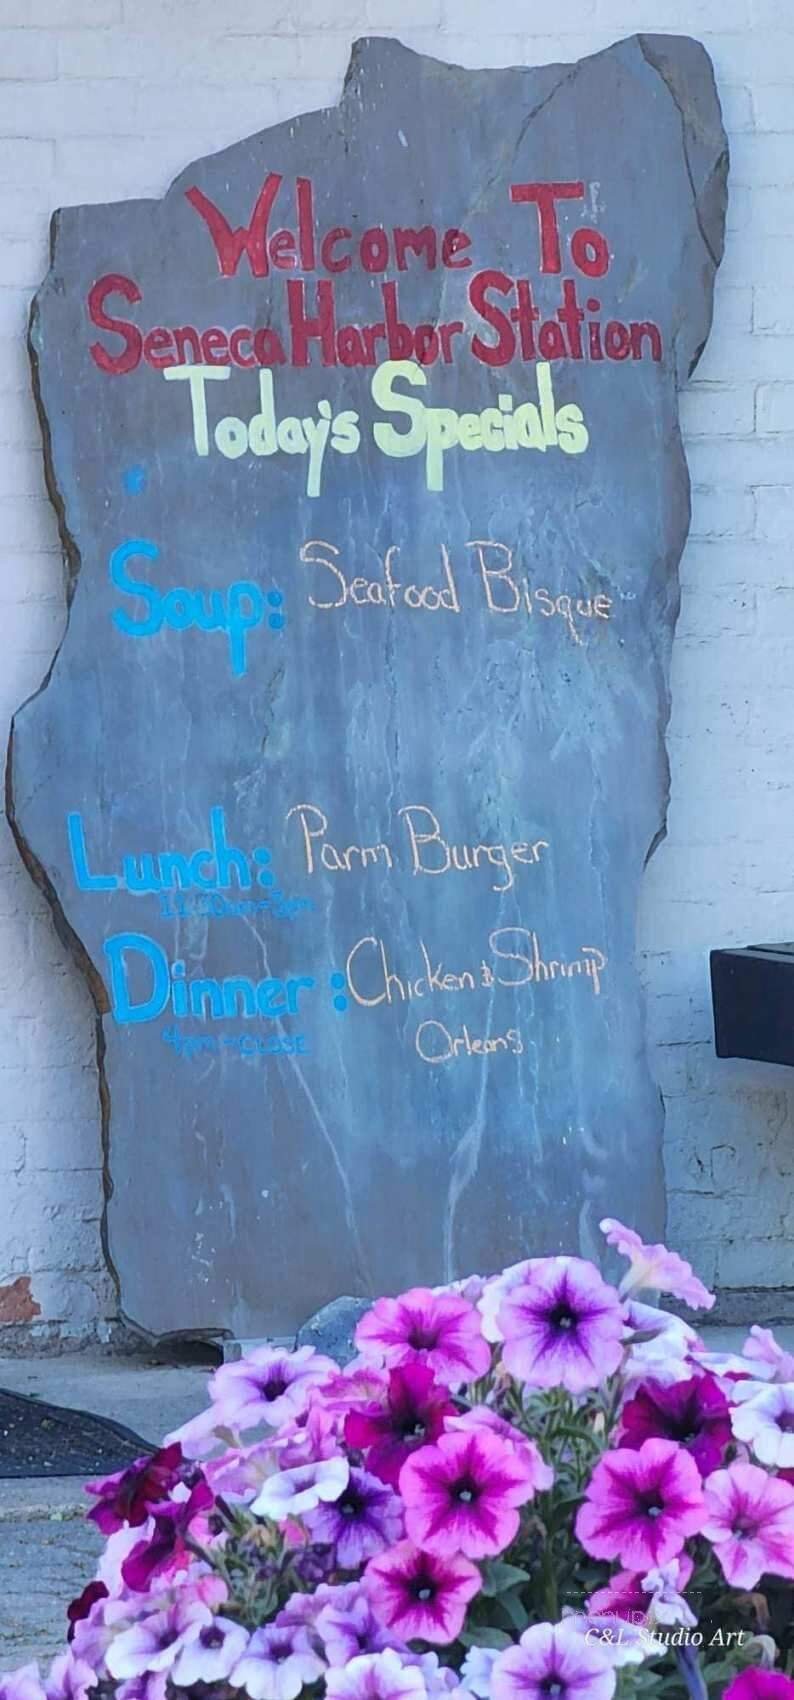 Welcome To
Seneca Harbor Station
Today's Specials
Soup: Seafood Bisque
Lunch: Parm Burger
11:30am-3pm
Dinner: Chicken & Shrimp
4pm-CLOSE Orleans
C&L Studio Art